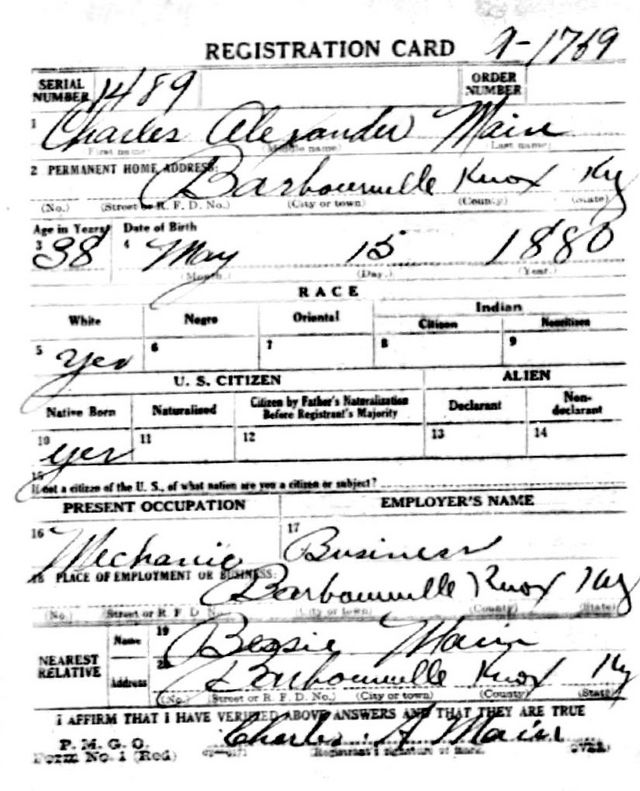 REGISTRATION CARD
SERIAL NUMBER 1489 ORDER NUMBER
1 Charles Alexander Main
First name (Middle name) Last name
2 PERMANENT HOME ADDRESS:
Barbourville Knox Ky
(No.) (Street or R. F. D. No.) (City or town) (County) (State)
Age in Years Date of Birth
3 38 4 May 15 1880
(Month.) (Day.) (Year.)
RACE
White Negro Oriental Indian
Citizen Noncitizen
5 yes 6 7 8 9
U. S. CITIZEN ALIEN
Native Born Naturalized Citizen by Father's Naturalization Before Registrant's Majority Declarant Non-declarant
10 yes 11 12 13 14
15 If not a citizen of the U. S., of what nation are you a citizen or subject?
PRESENT OCCUPATION EMPLOYER'S NAME
16 Mechanic 17 Business
18 PLACE OF EMPLOYMENT OR BUSINESS:
Barbourville Knox Ky
(No.) Street or R F D No. (City or town) (County) (State)
NEAREST RELATIVE Name 19 Bessie Main
Address 20 Barbourville Knox Ky
(No.) (Street or R. F. D. No.) (City or town) (County) (State)
I AFFIRM THAT I HAVE VERIFIED ABOVE ANSWERS AND THAT THEY ARE TRUE
P. M. G. O.
Form No. 1 (Red) Charles A Main
(Registrant's signature or mark. OVER)